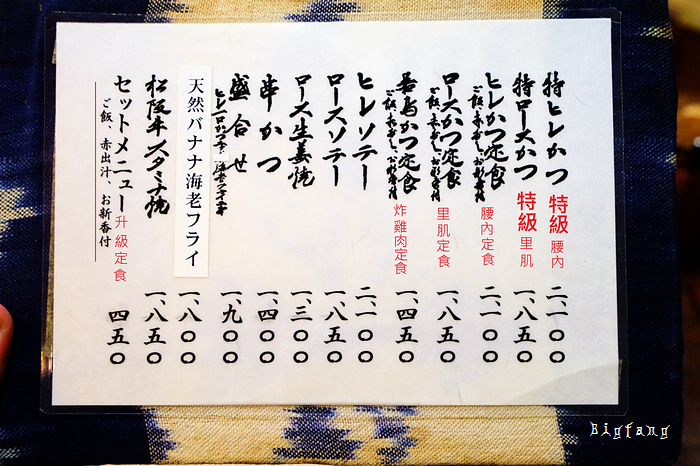 特ヒレかつ 特級 腰內 二、一〇〇
特ロースかつ 特級 里肌 一、八五〇
ヒレかつ定食 腰內定食 二、一〇〇
ご飯、赤出し、お新香付
ロースかつ定食 里肌定食 一、八五〇
ご飯、赤出し、お新香付
若鳥かつ定食 炸雞肉定食 一、四五〇
ご飯、赤出し、お新香付
ヒレソテー 二、一〇〇
ロースソテー 一、八五〇
ロース生姜焼 一、三〇〇
串かつ 一、四〇〇
盛合せ 一、九〇〇
天然バナナ海老フライ 一、八〇〇
松阪牛スタミナ焼 一、八五〇
セットメニュー 升級定食 四五〇
ご飯、赤出汁、お新香付
Bigfang